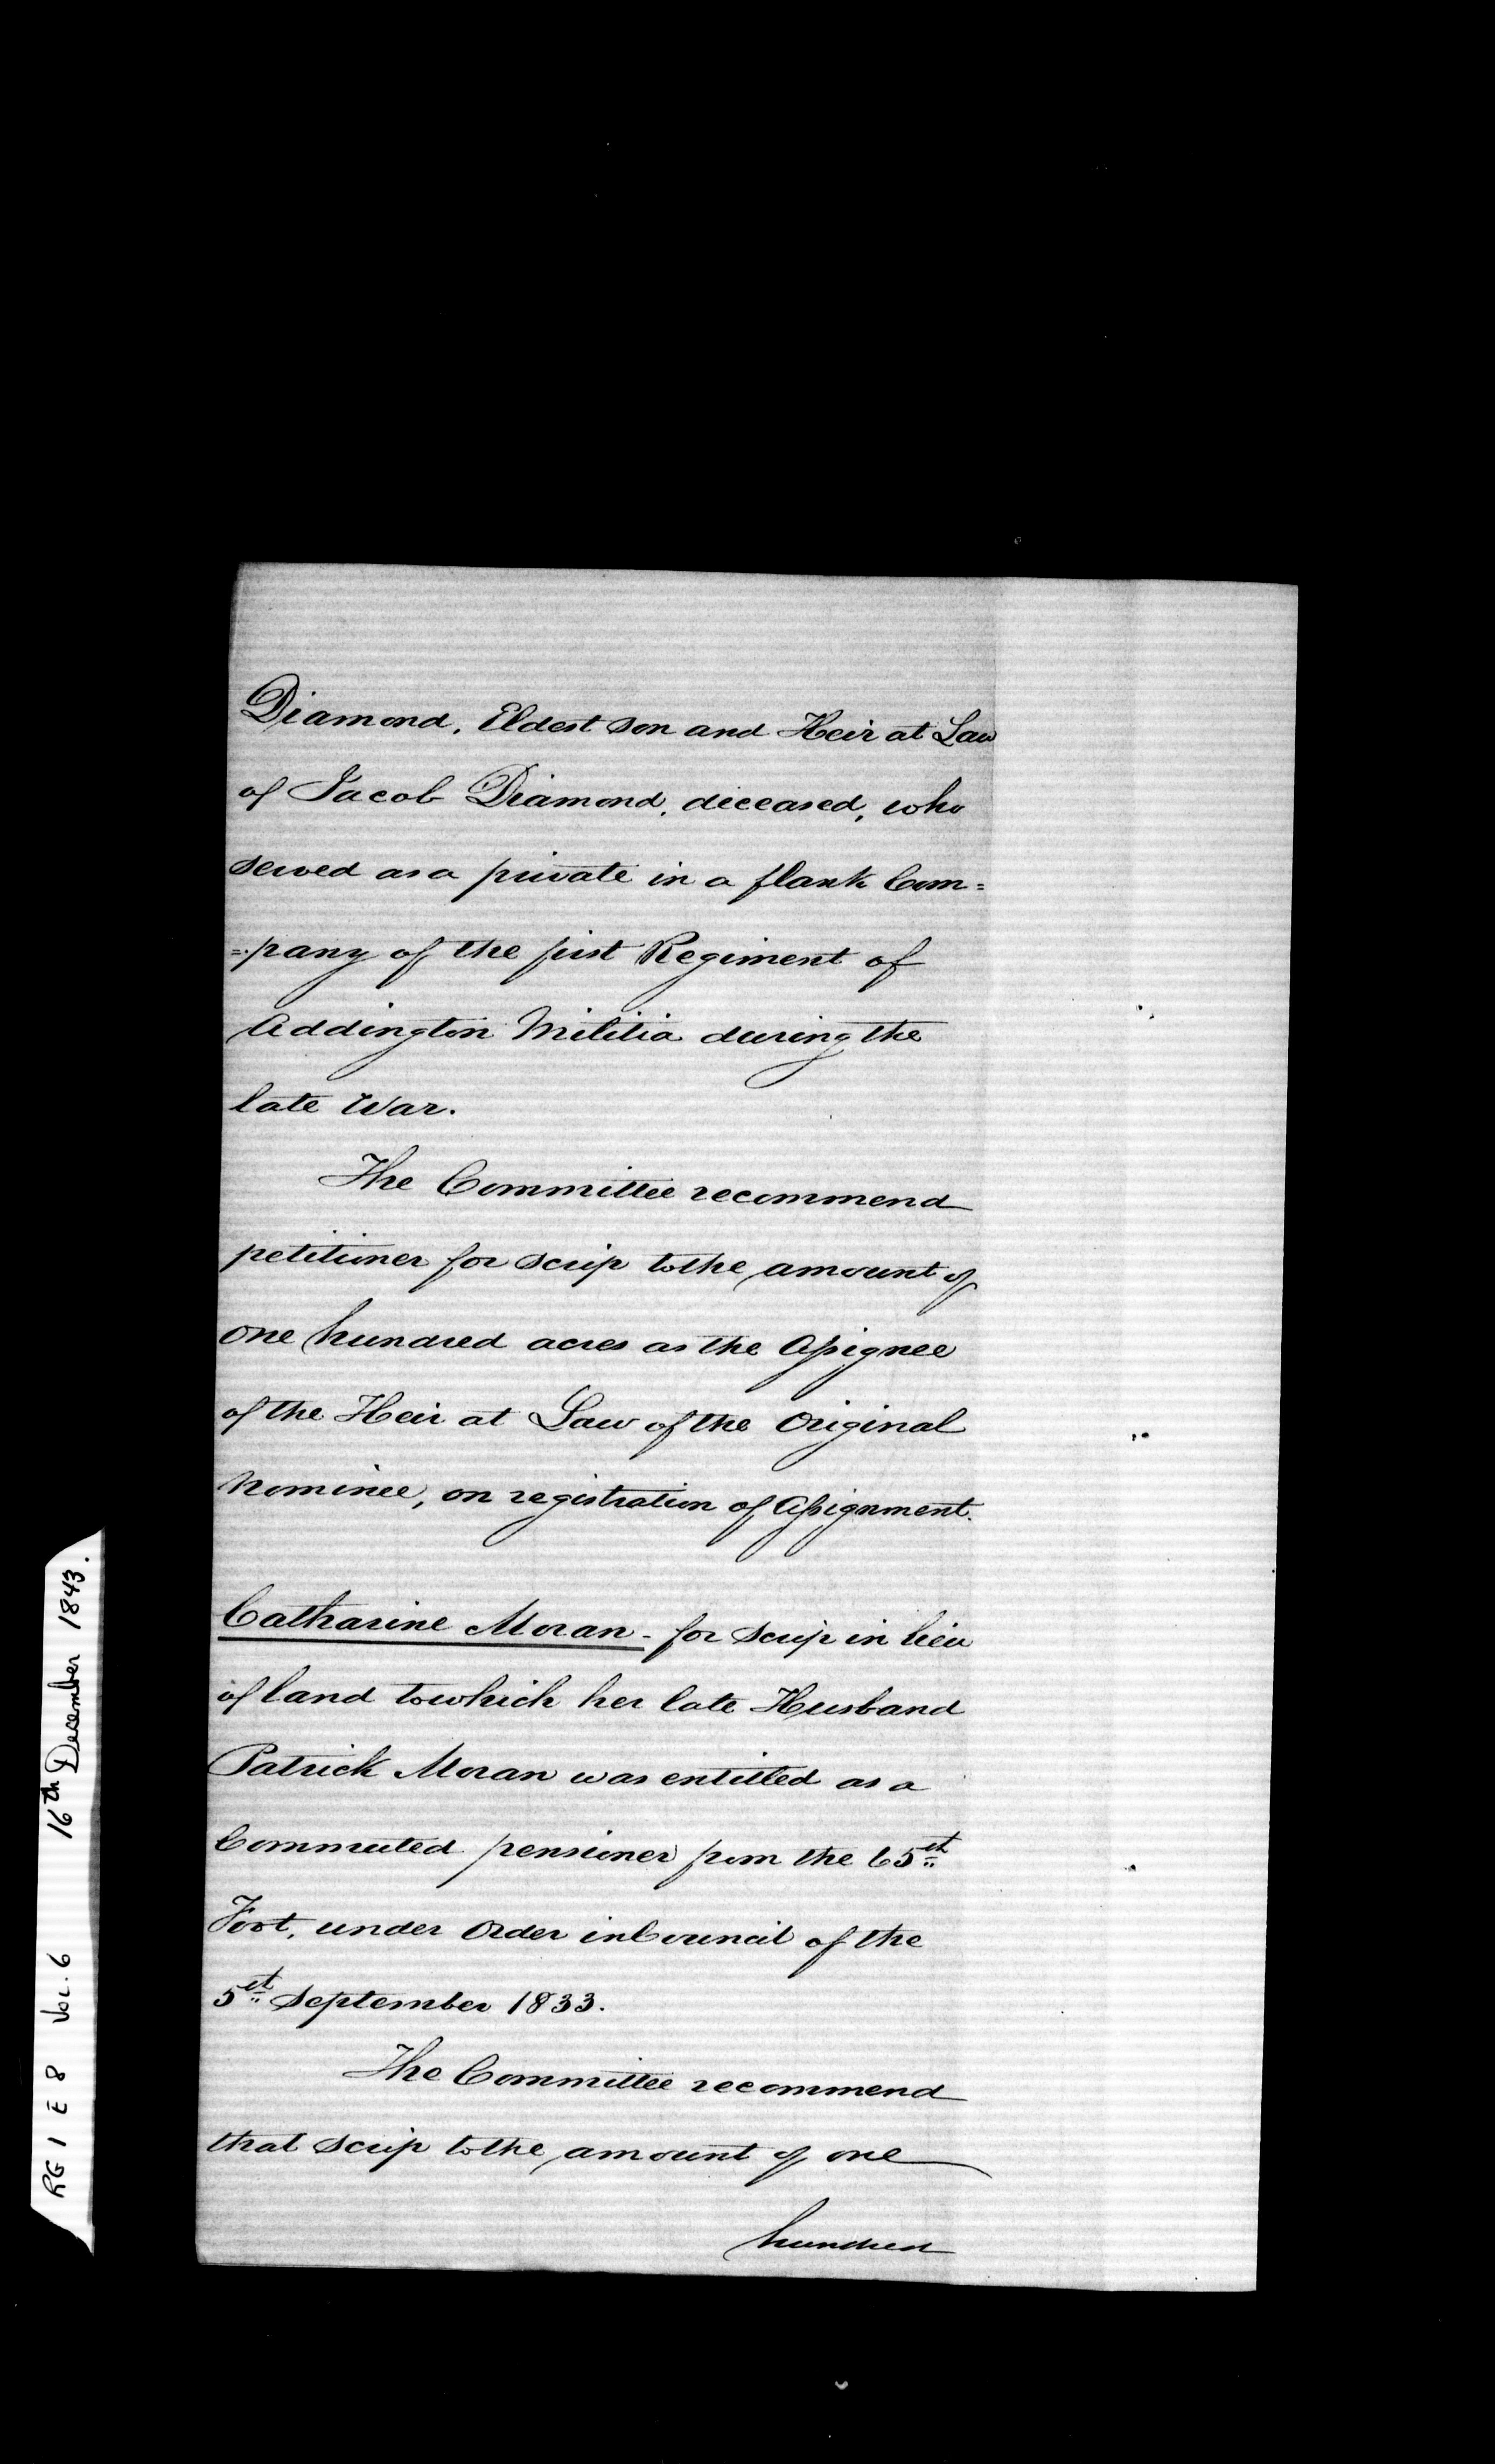 Diamond, Eldest son and Heir at Law
of Jacob Diamond, deceased, who
served as a private in a flank Com=
=pany of the first Regiment of
Addington Militia during the
late War.
The Committee recommend
petitioner for scrip to the amount of
one hundred acres as the Assignee
of the Heir at Law of the Original
Nominee, on registration of Assignment.
Catharine Moran - for scrip in lieu
of land to which her late Husband
Patrick Moran was entitled as a
Commuted pensioner from the 65th
Foot, under Order in Council of the
5th September 1833.
The Committee recommend
that scrip to the amount of one
hundred
RG 1 E 8 Vol. 6 16th December 1843.